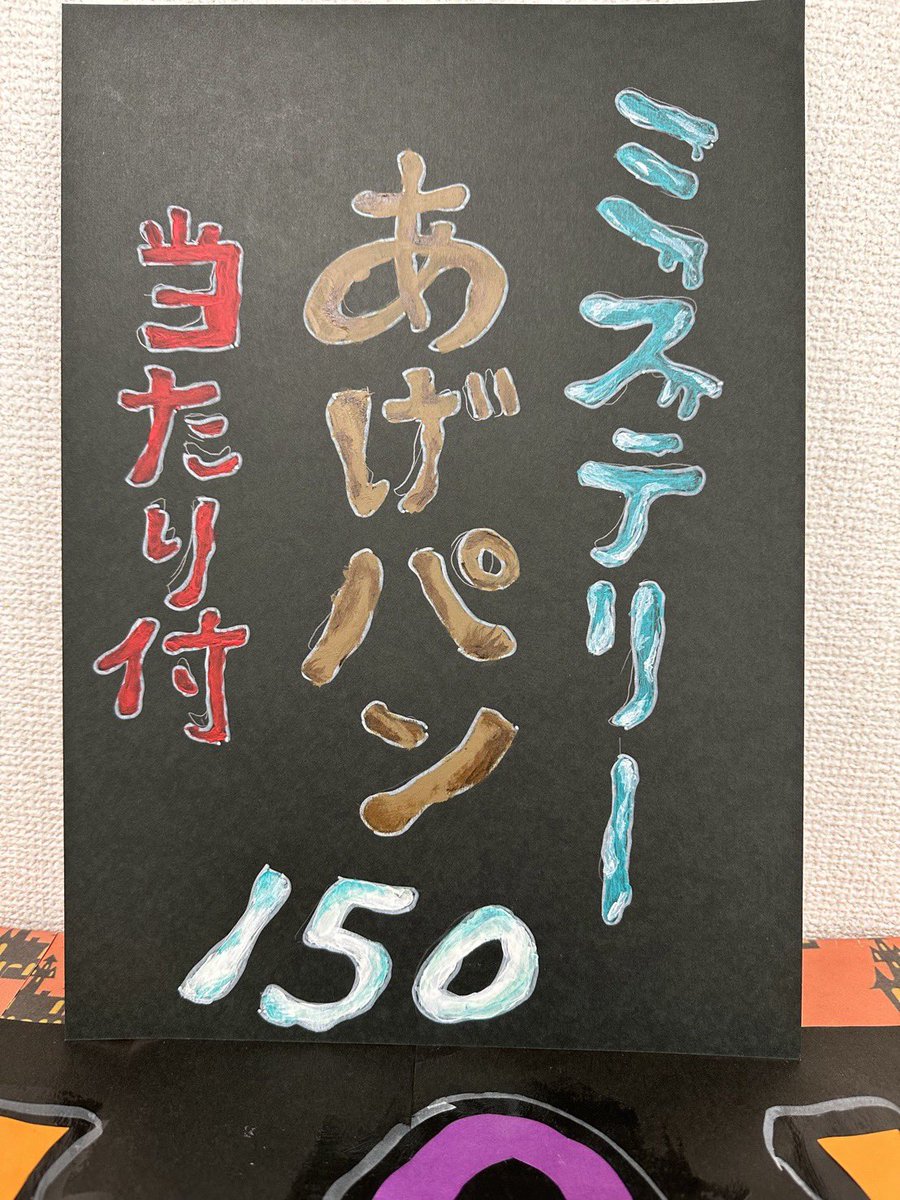 ミステリー
あげパン
当たり付
150